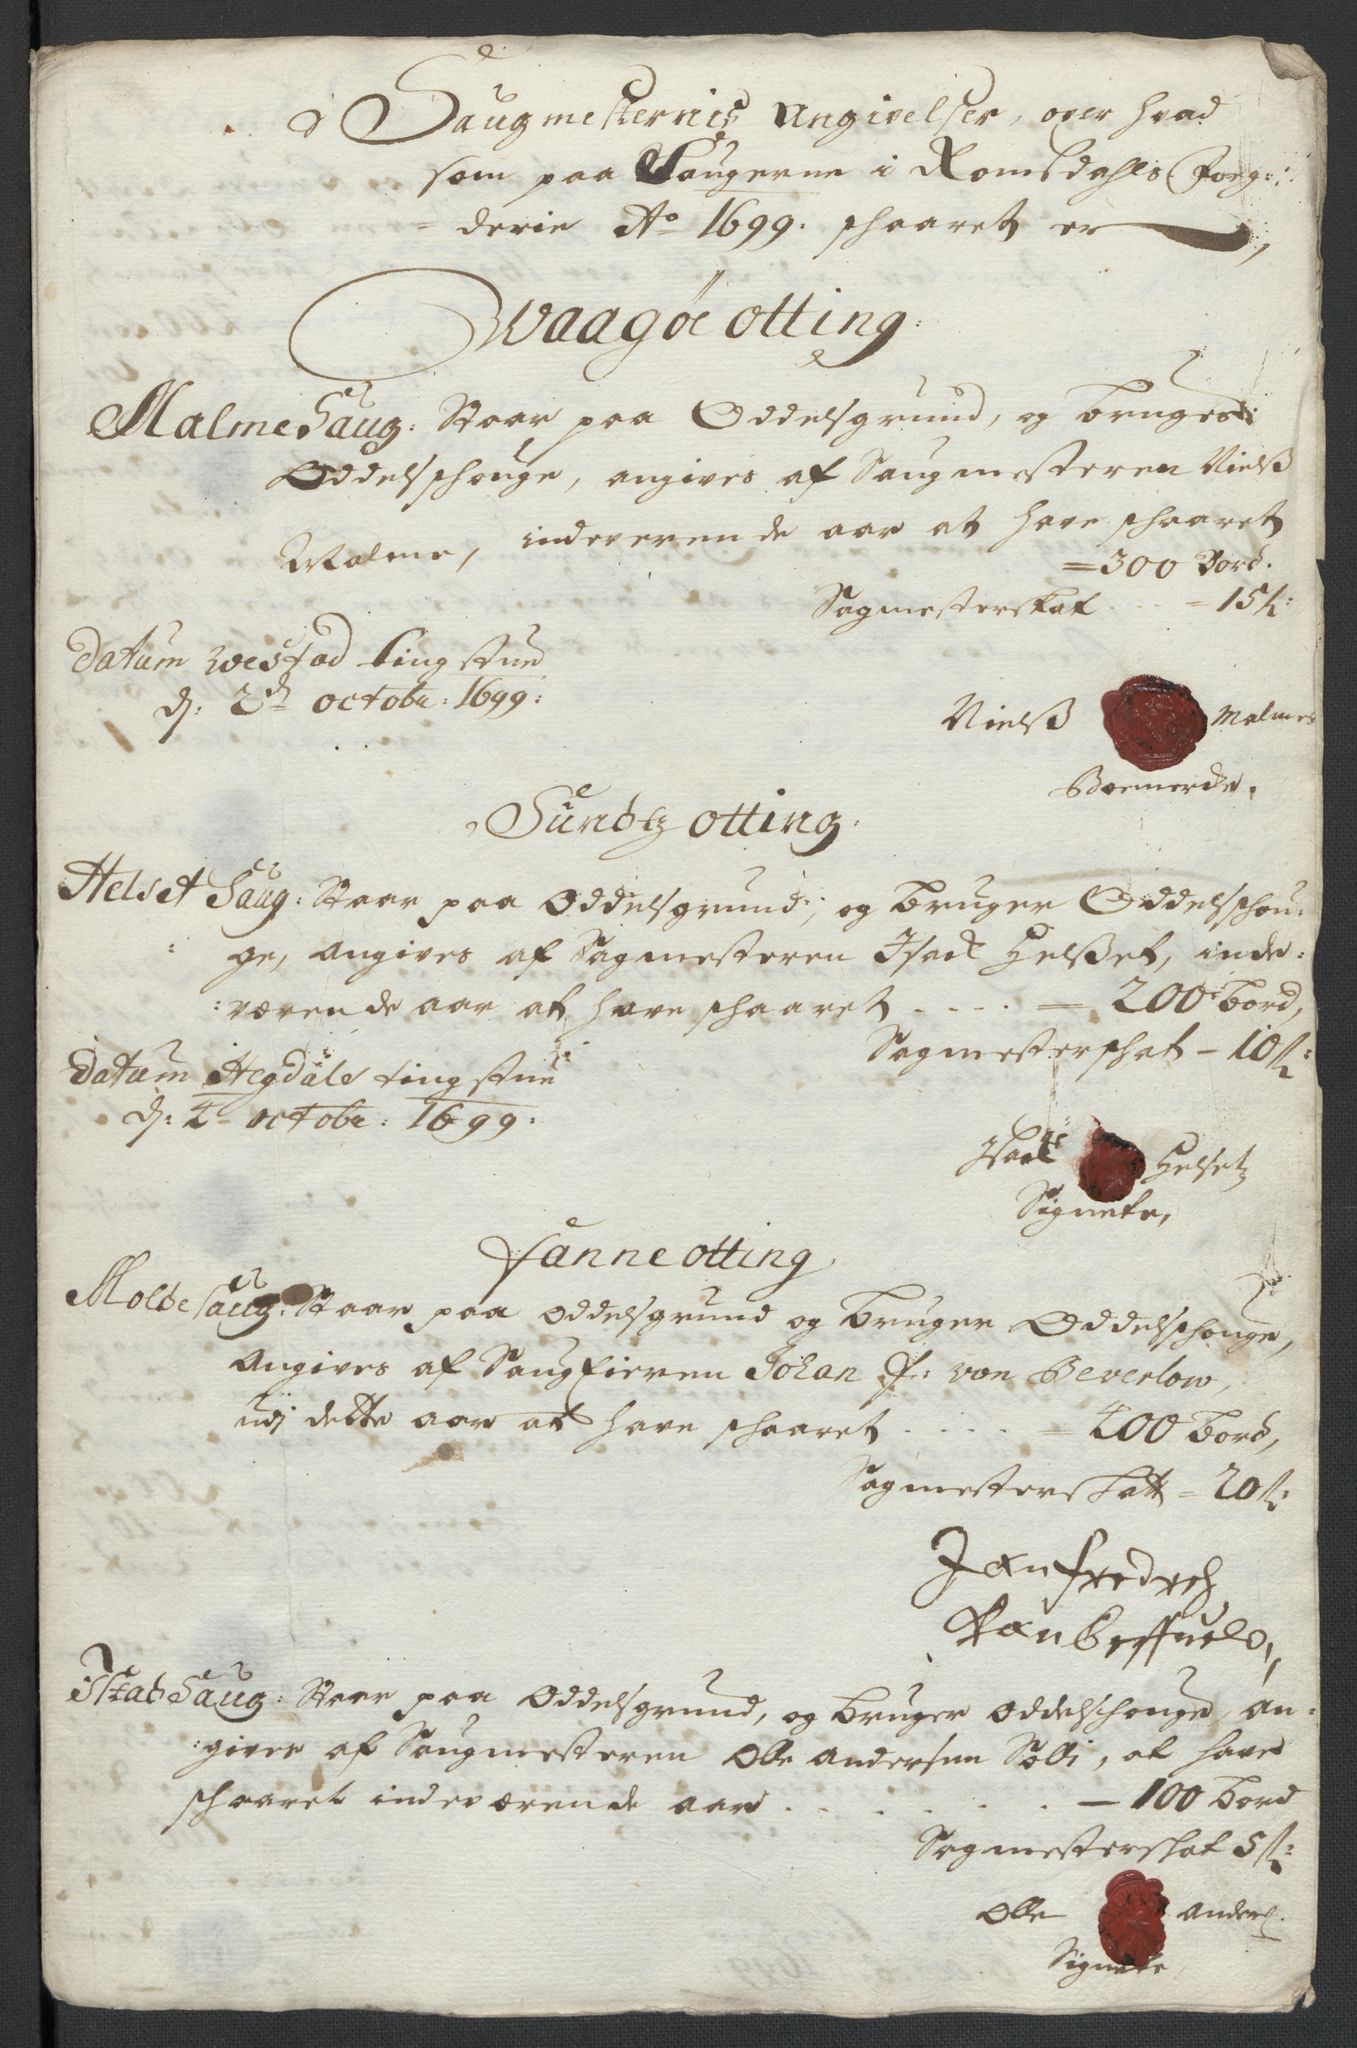 Saugmesternis Angivelser, over hvad
som paa Saugerne i Romsdahls Foog=
=derie Ao 1699. schaaret er,
Waagöe otting:
Malme Saug: Staar paa Oddelsgrund, og bruges
Oddelschouge, angives af Saugmesteren Nielß
Malme, indeverende aar at have schaaret
=300 Bord.
Sagmesterskat - - - = 15 ß:
Datum Westad tingstue
d: 2d octobr: 1699:
Nielß Malmes
Boemercke.
Sundtz otting:
Helset Saug: Staar paa Oddelsgrund, og bruger Oddelschou=
ge, angives af Sagmesteren Isack Helßet, inde=
:værende aar at have schaaret - - - - = 200 bord,
Sagmesterschat - 10 ß:
Datum Hegdals tingstue
d: 4 octobr: 1699:
Isack Helsetz
Signete,
Fanne otting
Molde Saug: Staar paa Oddelsgrund og bruger Oddelschouge,
Angives af Saugfieren Johan F: von Beverlow,
udj dette aar at have schaaret - - - - = 400 bord,
Sagmesterskatt = 20 ß:
Jan fredrch
Van
Skab Saug: Staar paa Oddelsgrund, og bruger oddelschouge, an=
:giver af Saugmesteren Olle Andersen Solli, at have
schaaret indeværende aar - - - - - - 100 bord
Sagmesterskat 5 ß:
Olle Anders:
Signete